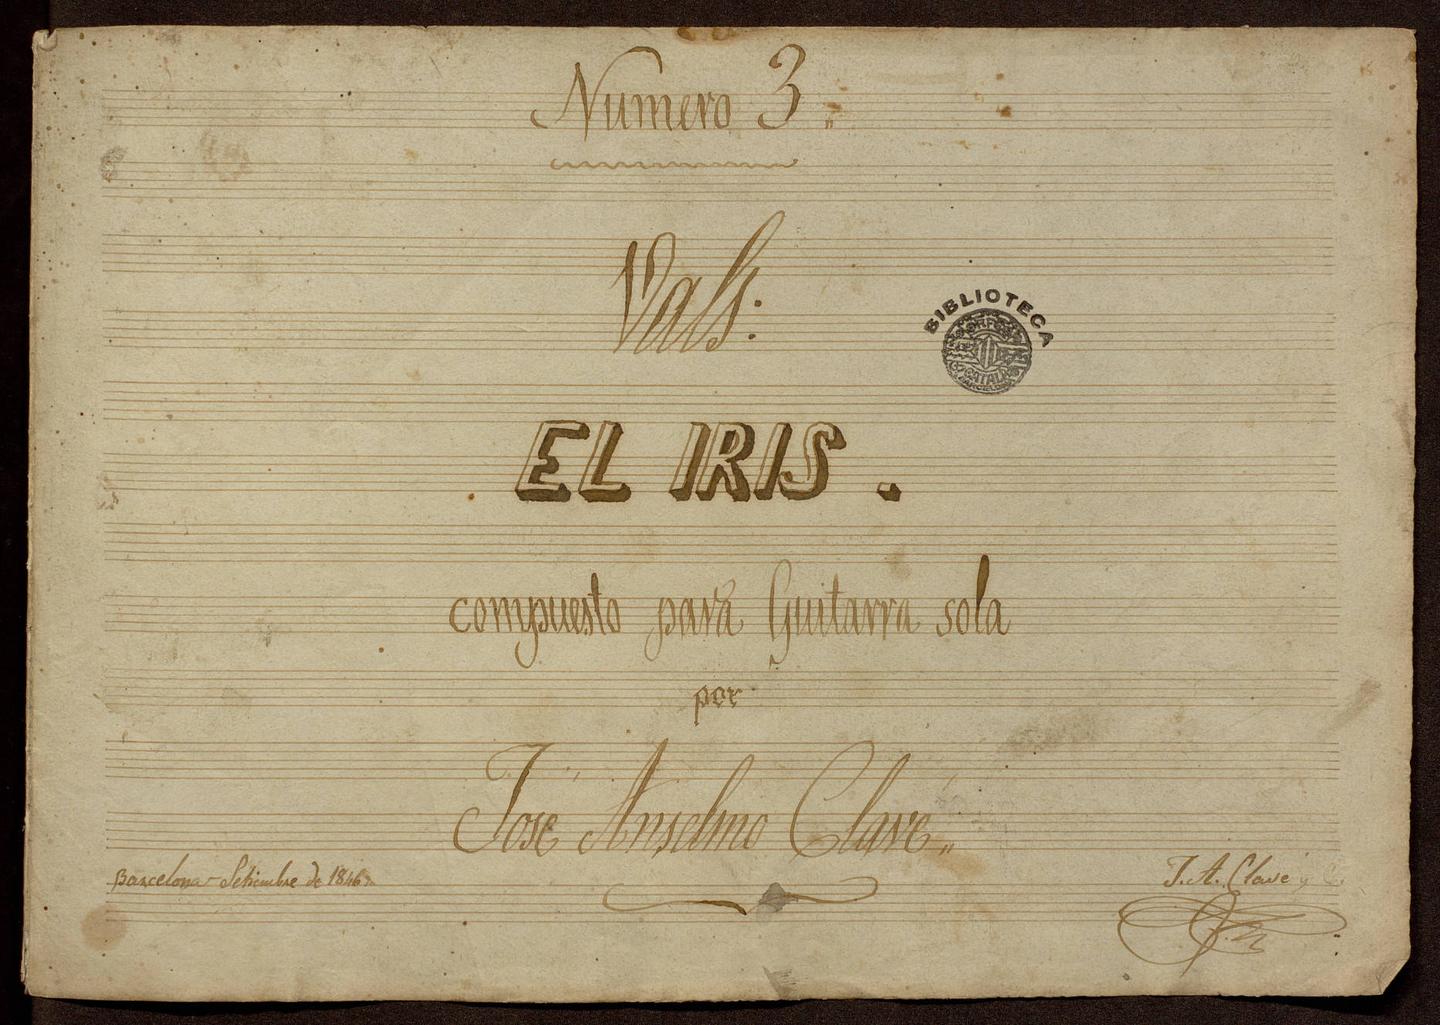 Numero 3.
Vals:
BIBLIOTECA
ORFEÓ
CATALÀ
EL IRIS.
compuesto para Guitarra sola
por
José Anselmo Clavé.
Barcelona - Setiembre de 1846.
J. A. Clavé y C.